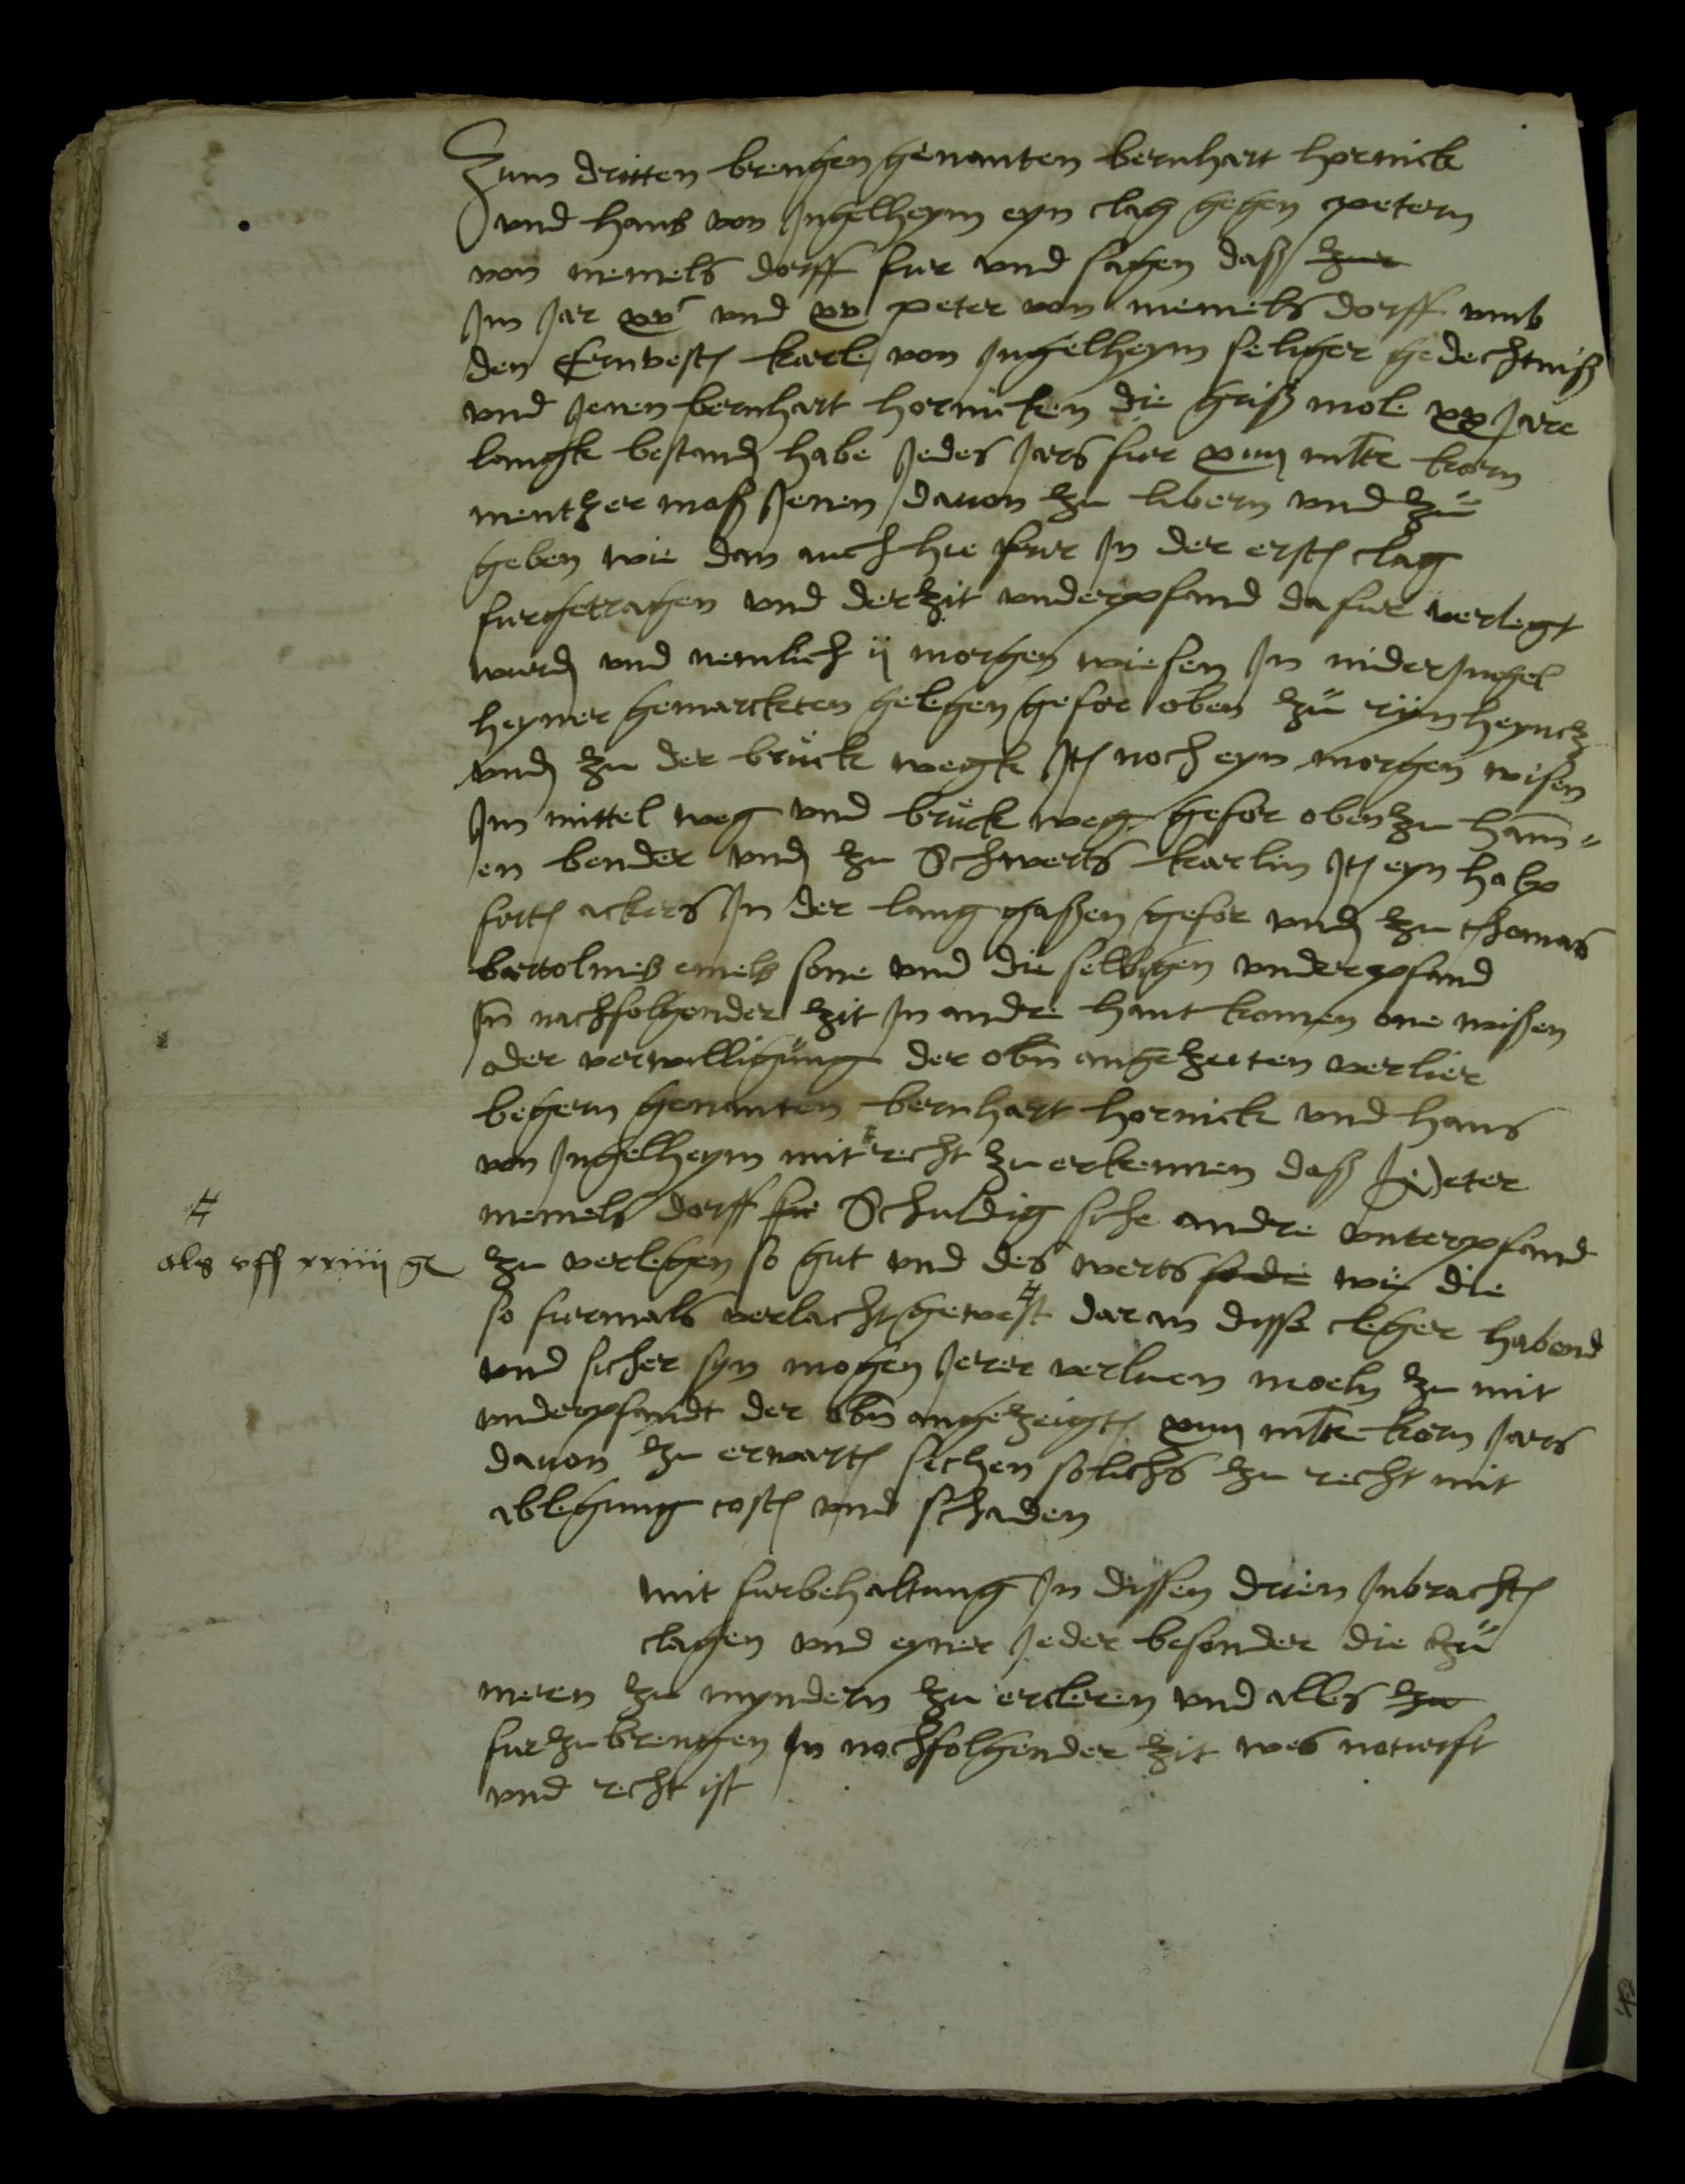 Zum dritten brengen genanten bernhart hornick
und hans von Ingelheym eyn clag gegen petern
von memels dorff fur und sagen daß zur
Im Jar xvᶜ und xv peter von memels dorff umb
den Ernvest karle von Ingelheym seliger gedechtniß
und Jenen bernhart hornicken die griß mole xx Jare
langk bestand habe Jedes Jars fur xiiij mltr korn
mentzer maß Jenen davon zu libern und zu
geben wie dan auch hie fur In der erst clag
furgetragen und der zit underpfand dafur verlegt
wurd und nemlich ij morgen wiesen In nider Ingel
heymer gemarckten gelegen gefor oben zu
und zu der bruck wegk It noch eyn morgen wisen
Im mittel weg und bruck weg gefor oben zu ham=
en bender und zu Schwerts karlin It eyn halp
fert ackers In der lang gaßen gefor und zu thomas
bartolmes emels sone und die selbigen underpfand
In nachfolgender zit In andre hant komen one wißen
oder verwilligung der obn angezeiten verlier
begern genanten bernhart hornick und hans
von Ingelheym mit recht zu erkennen daß peter
memels dorff sie Schuldig siche andre unterpfand
zu verlegen so gut und des werts so die wie die
so furmals verlacht gewest # dar an disse cleger habend
und sicher syn mogen Jerer verluen moeln zu mit
underpfandt der obn angezeigt xiiij mltr korn Jars
davon zu erwart sechen solichs zu recht mit
ablegung cost und schaden
#
als uff xxiiij gl
mit furbehaltung In dissen drien Inbracht
clagen und eyner Jeder besonder die zu
mern zu myndern zu ercleren und alles zu
fur zu brengen In nochfolgender zit wes noturft
und recht ist